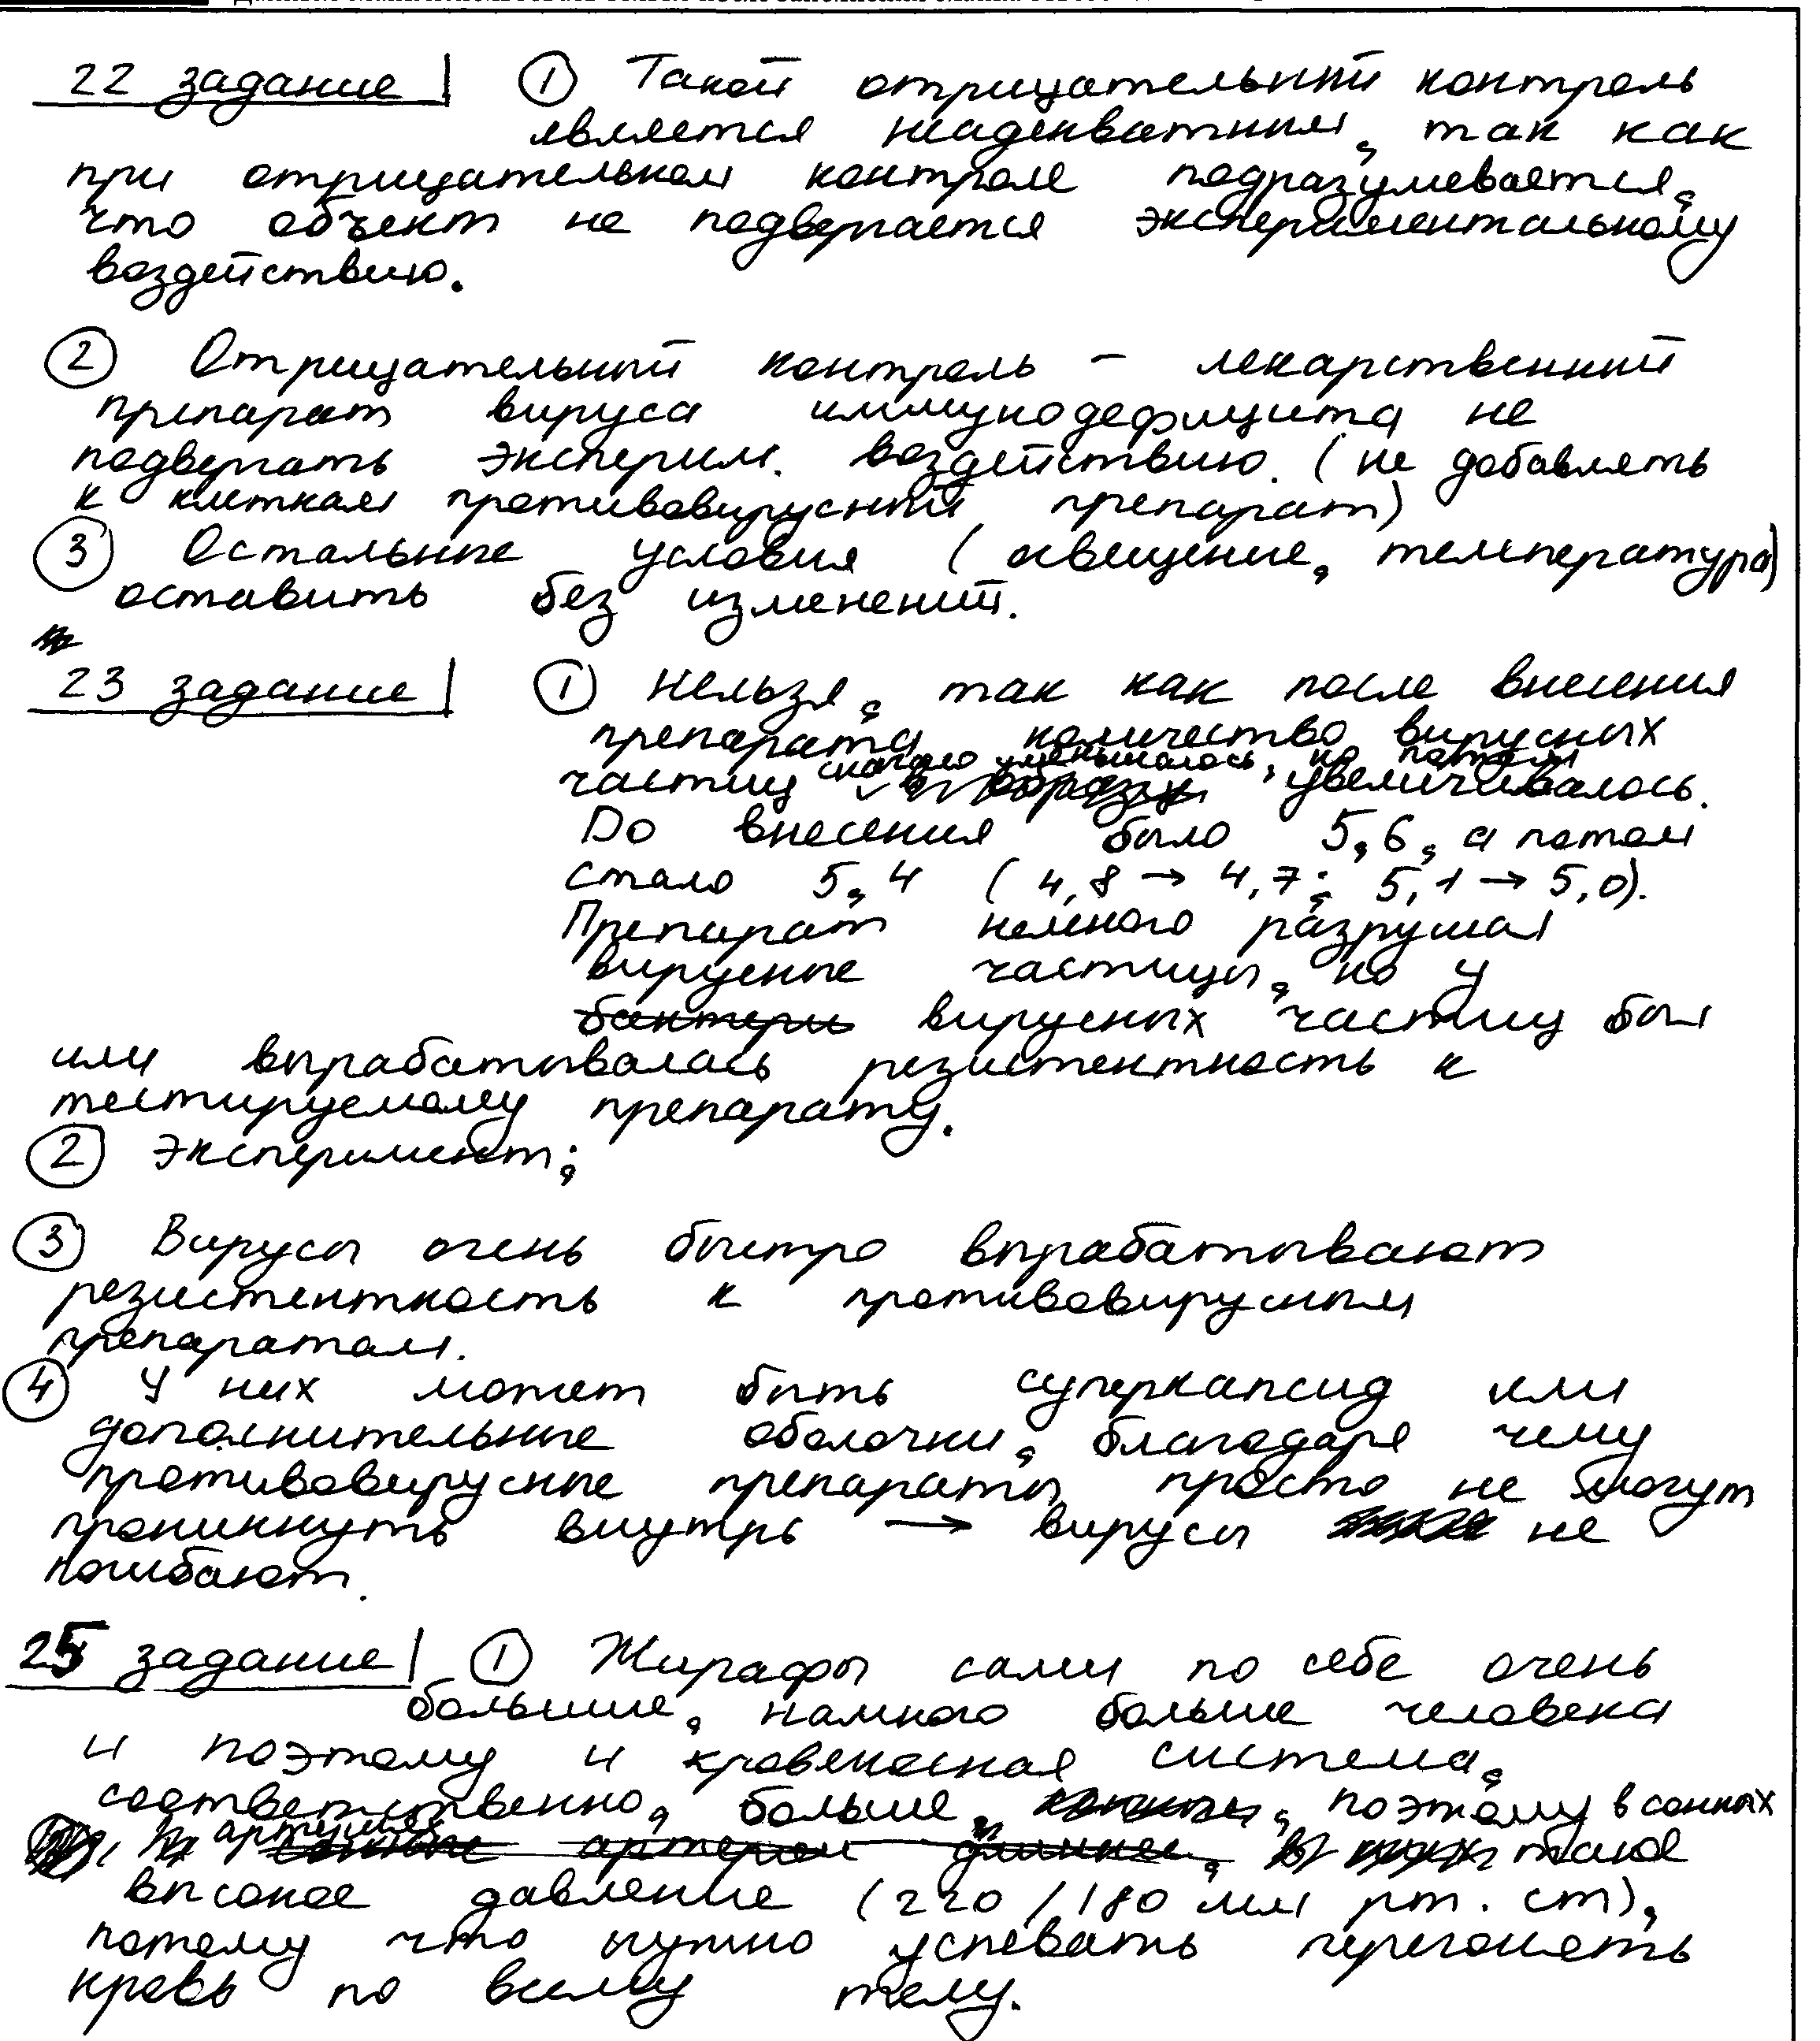 22 задание | ① Такой отрицательный контроль
является неадекватным, так как
при отрицательном контроле подразумевается,
что объект не подвергается экспериментальному
воздействию.
② Отрицательный контроль - лекарственный
препарат вируса иммунодефицита не
подвергать эксперим. воздействию (не добавлять
к клеткам противовирусный препарат)
③ Остальные условия (освещение, температура)
оставить без изменений.
23 задание | ① Нельзя, так как после внесения
препарата количество вирусных
частиц сначало уменьшалось, но потом увеличивалось.
До внесения было 5,6, а потом
стало 5,4 (4,8 → 4,7; 5,1 → 5,0).
Препарат немного разрушал
вирусные частицы, но у
бактери вирусных частиц был
или вырабатывалась резистентность к
тестируемому препарату.
② Эксперимент;
③ Вирусы очень быстро вырабатывают
резистентность к противовирусным
препаратам.
④ У них может быть суперкапсид или
дополнительные оболочки, благодаря чему
противовирусные препараты просто не могут
проникнуть внутрь → вирусы не
погибают.
25 задание | ① Жирафы сами по себе очень
большие, намного больше человека
и поэтому и кровеносная система,
соответственно, больше, поэтому в сонных
артериях такое
высокое давление (220/180 мм рт. ст),
потому что нужно успевать перегонять
кровь по всему телу.